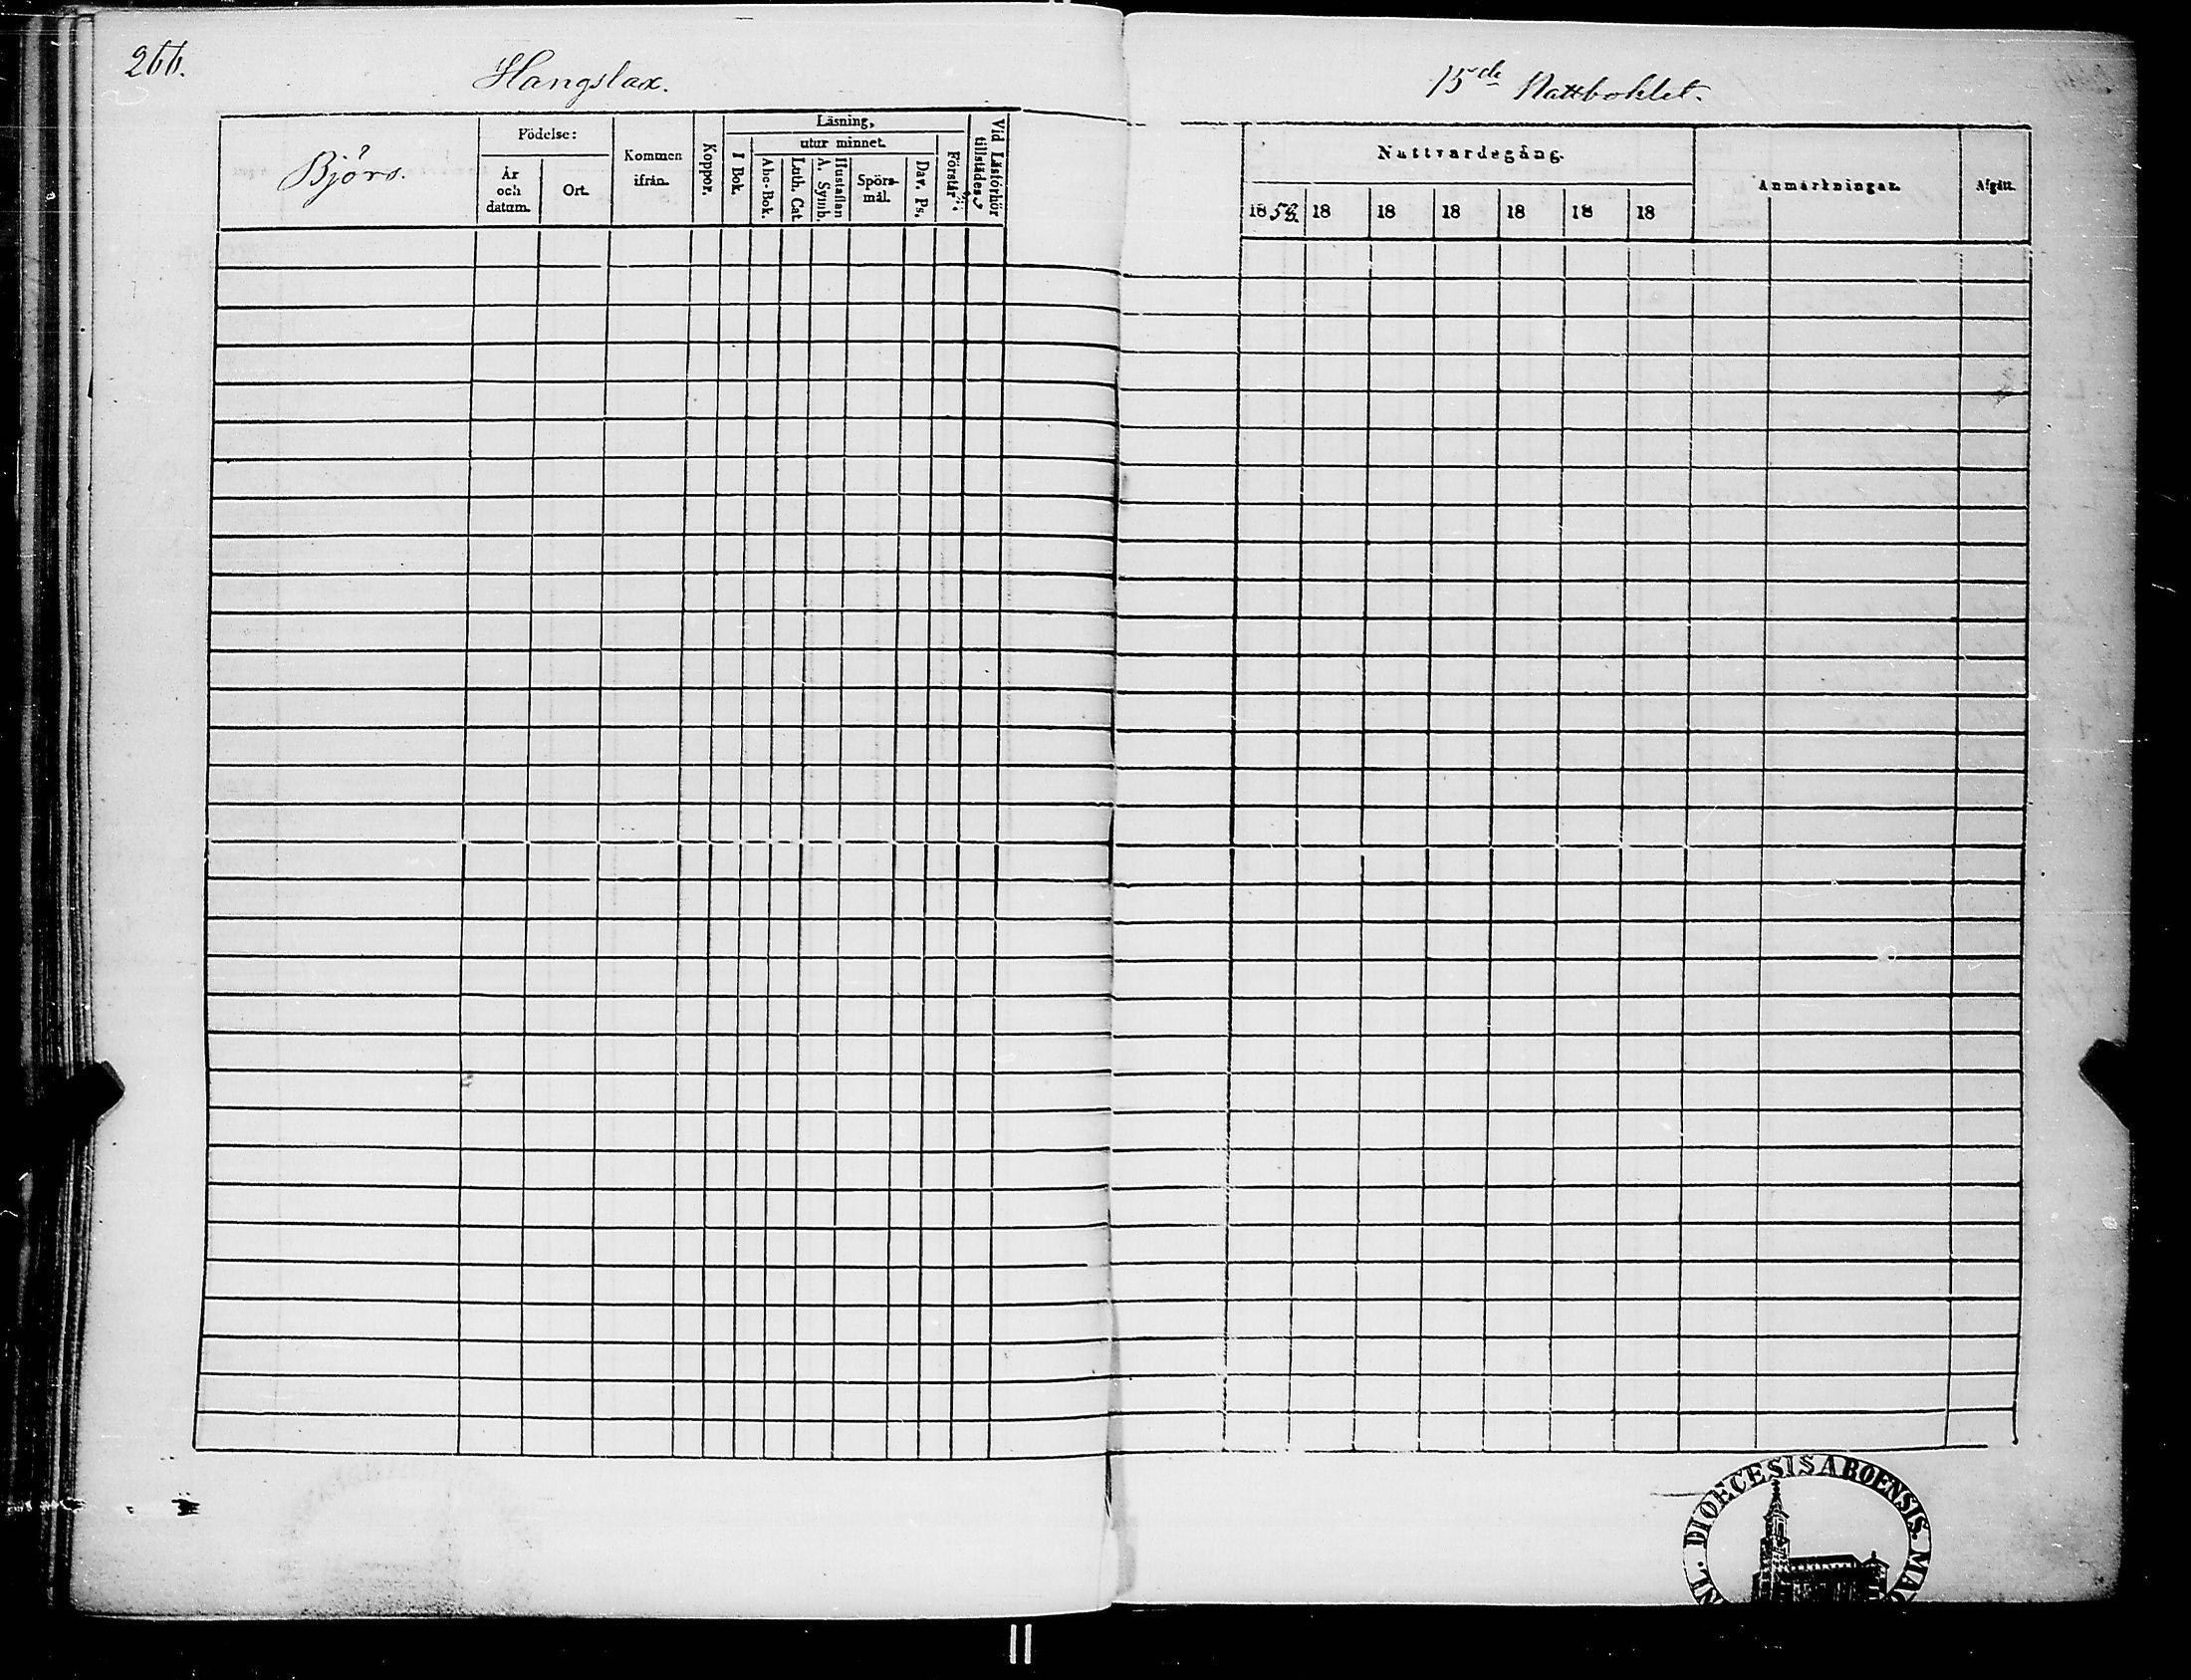 266.
Hangslax.
15de Nattbohlet.
Björs.
Födelse:
År
och
datum.
Ort.
Kommen
ifrån.
Koppor.
Läsning,
I Bok.
utur minnet.
Abc-Bok.
Luth. Cat.
Hustaflan
A. Symb.
Spörs-
mål.
Dav. Ps.
Förstår
Vid Läsförhör
tillstädes
Nattvardsgång.
1858. 18 18 18 18 18 18
Anmärkningar.
Afgått.
DIOECESIS ABOENSIS.